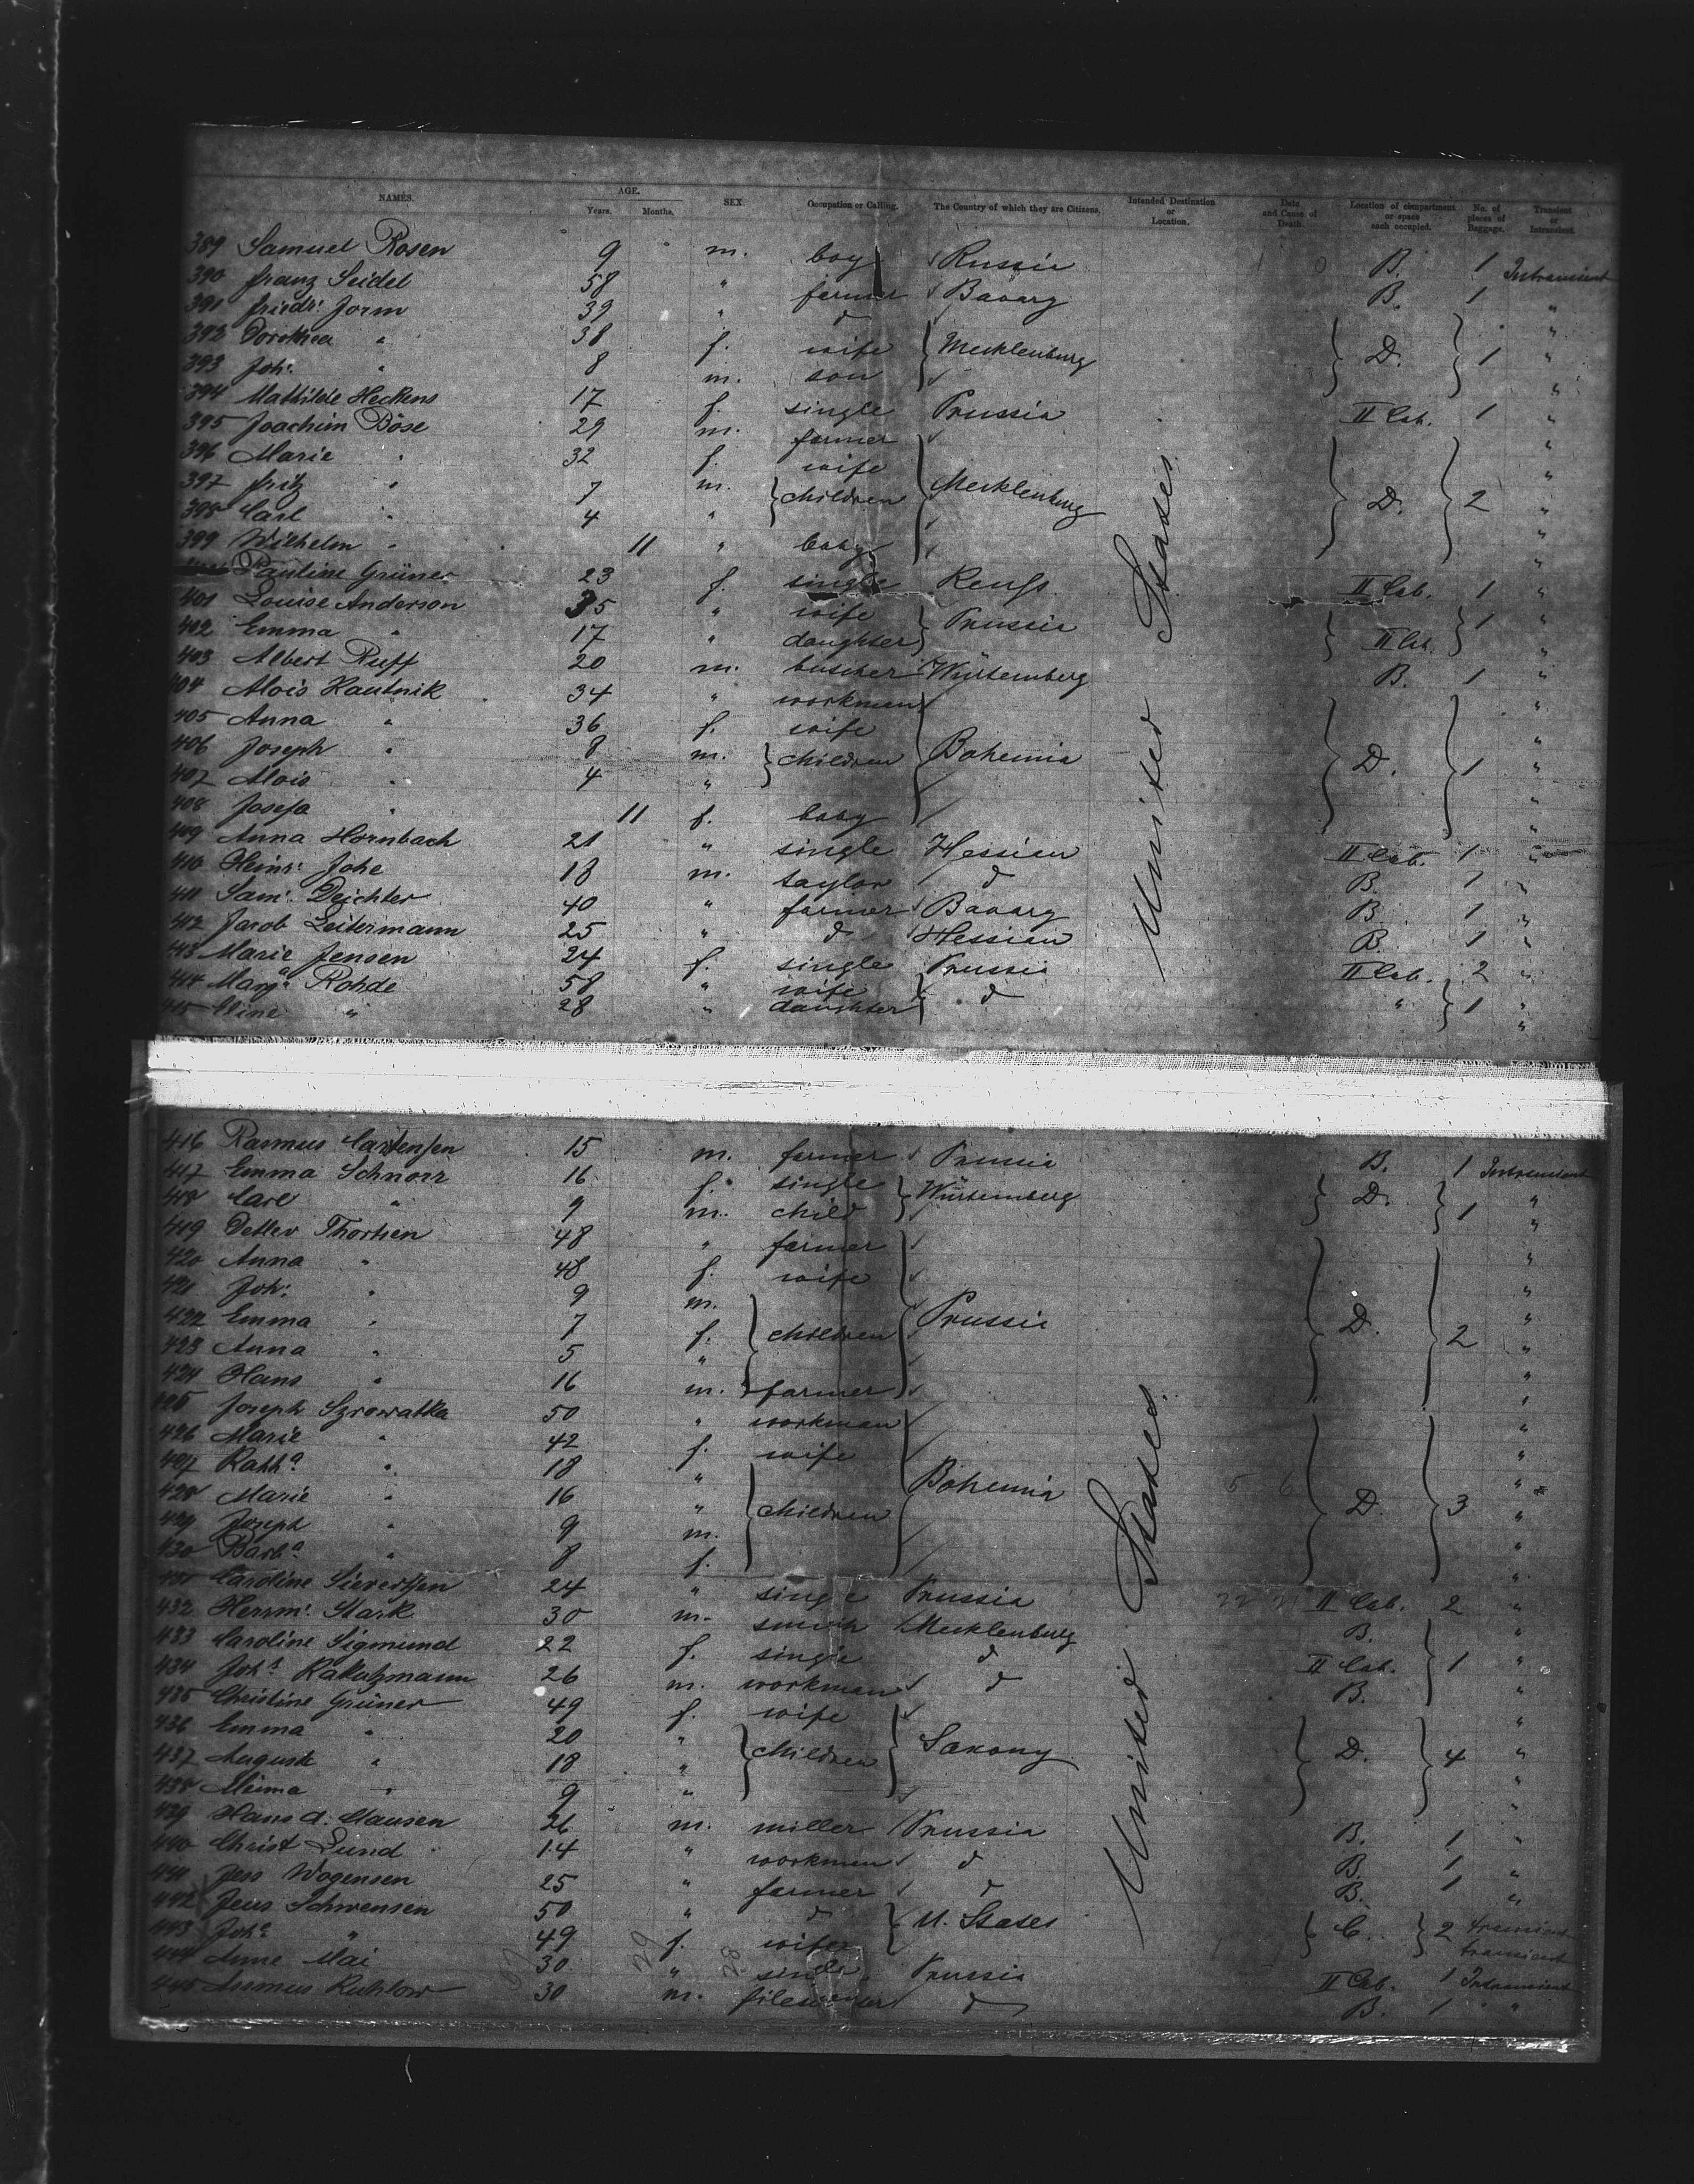 NAMES. AGE. Years. Months. SEX. Occupation or Calling. The Country of which they are Citizens. Intended Destination or Location. Date and Cause of Death. Location of compartment or space each occupied. No. of pieces of Baggage. Transient or Intransient.
389 Samuel Rosen 9 m. boy Russia B. 1 Intransient
390 Franz Seidel 58 " farmer Bavary B. 1 "
391 Friedr: Jorm 39 " d "
392 Dorothea " 38 f. wife Mecklenburg D. 1 "
393 Joh: " 8 m. son "
394 Mathilde Heckens 17 f. single Prussia II Cab. 1 "
395 Joachim Böse 29 m. farmer "
396 Marie " 32 f. wife "
397 Fritz " 7 m. children Mecklenburg D. 2 "
398 Carl " 4 " "
399 Wilhelm " 11 " baby "
Pauline Grüner 23 f. single Reuss II Cab. 1 "
401 Louise Anderson 35 " wife Prussia 1 "
402 Emma " 17 " daughter II Cab. "
403 Albert Ruff 20 m. butcher Würtemberg B. 1 "
404 Alois Kautnik 34 " workman "
405 Anna " 36 f. wife "
406 Joseph " 8 m. children Bohemia D. 1 "
407 Alois " 4 " "
408 Josefa " 11 f. baby "
409 Anna Hornbach 21 " single Hessian II Cab. 1 "
410 Heinr: Johe 18 m. taylor d B. 1 "
411 Sam: Deichter 40 " farmer Bavary B. 1 "
412 Jacob Leitermann 25 " d Hessian B. 1 "
413 Marie Jensen 24 f. single Prussia II Cab. 2 "
414 Marga Rohde 58 " wife d " 1 "
415 " 28 " daughter "
United States
416 Rasmus Cartensen 15 m. farmer Prussia B. 1 Intransient
417 Emma Schnorr 16 f. single Würtemberg D. 1 "
418 Carl " 9 m. child "
419 Detlev Thortsen 48 " farmer "
420 Anna " 48 f. wife "
421 Joh: " 9 m. "
422 Emma " 7 f. children Prussia D. 2 "
423 Anna " 5 " "
424 Hans " 16 m. farmer "
425 Joseph Szrowatka 50 " workman "
426 Marie " 42 f. wife "
427 Katha " 18 " Bohemia "
428 Marie " 16 " children D. 3 "
429 Joseph " 9 m. "
430 Barba " 8 f. "
431 Caroline Sievertsen 24 " single Prussia II Cab. 2 "
432 Herrm: Stark 30 m. smith Mecklenburg B. "
433 Caroline Sigmund 22 f. single d II Cab. 1 "
434 Joh: 26 m. workman d B. "
435 Christine Grüner 49 f. wife "
436 Emma " 20 " children Saxony D. 4 "
437 Auguste " 18 " "
438 " 9 " "
439 Hans A. Clausen 26 m. miller Prussia B. 1 "
440 Christ Lund 14 " workman d B. 1 "
441 Jess Wogensen 25 " farmer d B. 1 "
442 Jens Schwensen 50 " d U. States C. 2 transient
443 Joha " 49 f. wife transient
444 Anne Mai 30 " single Prussia II Cab. 1 Intransient
445 Asmus Ruhlow 30 m. d B. 1 "
United States.